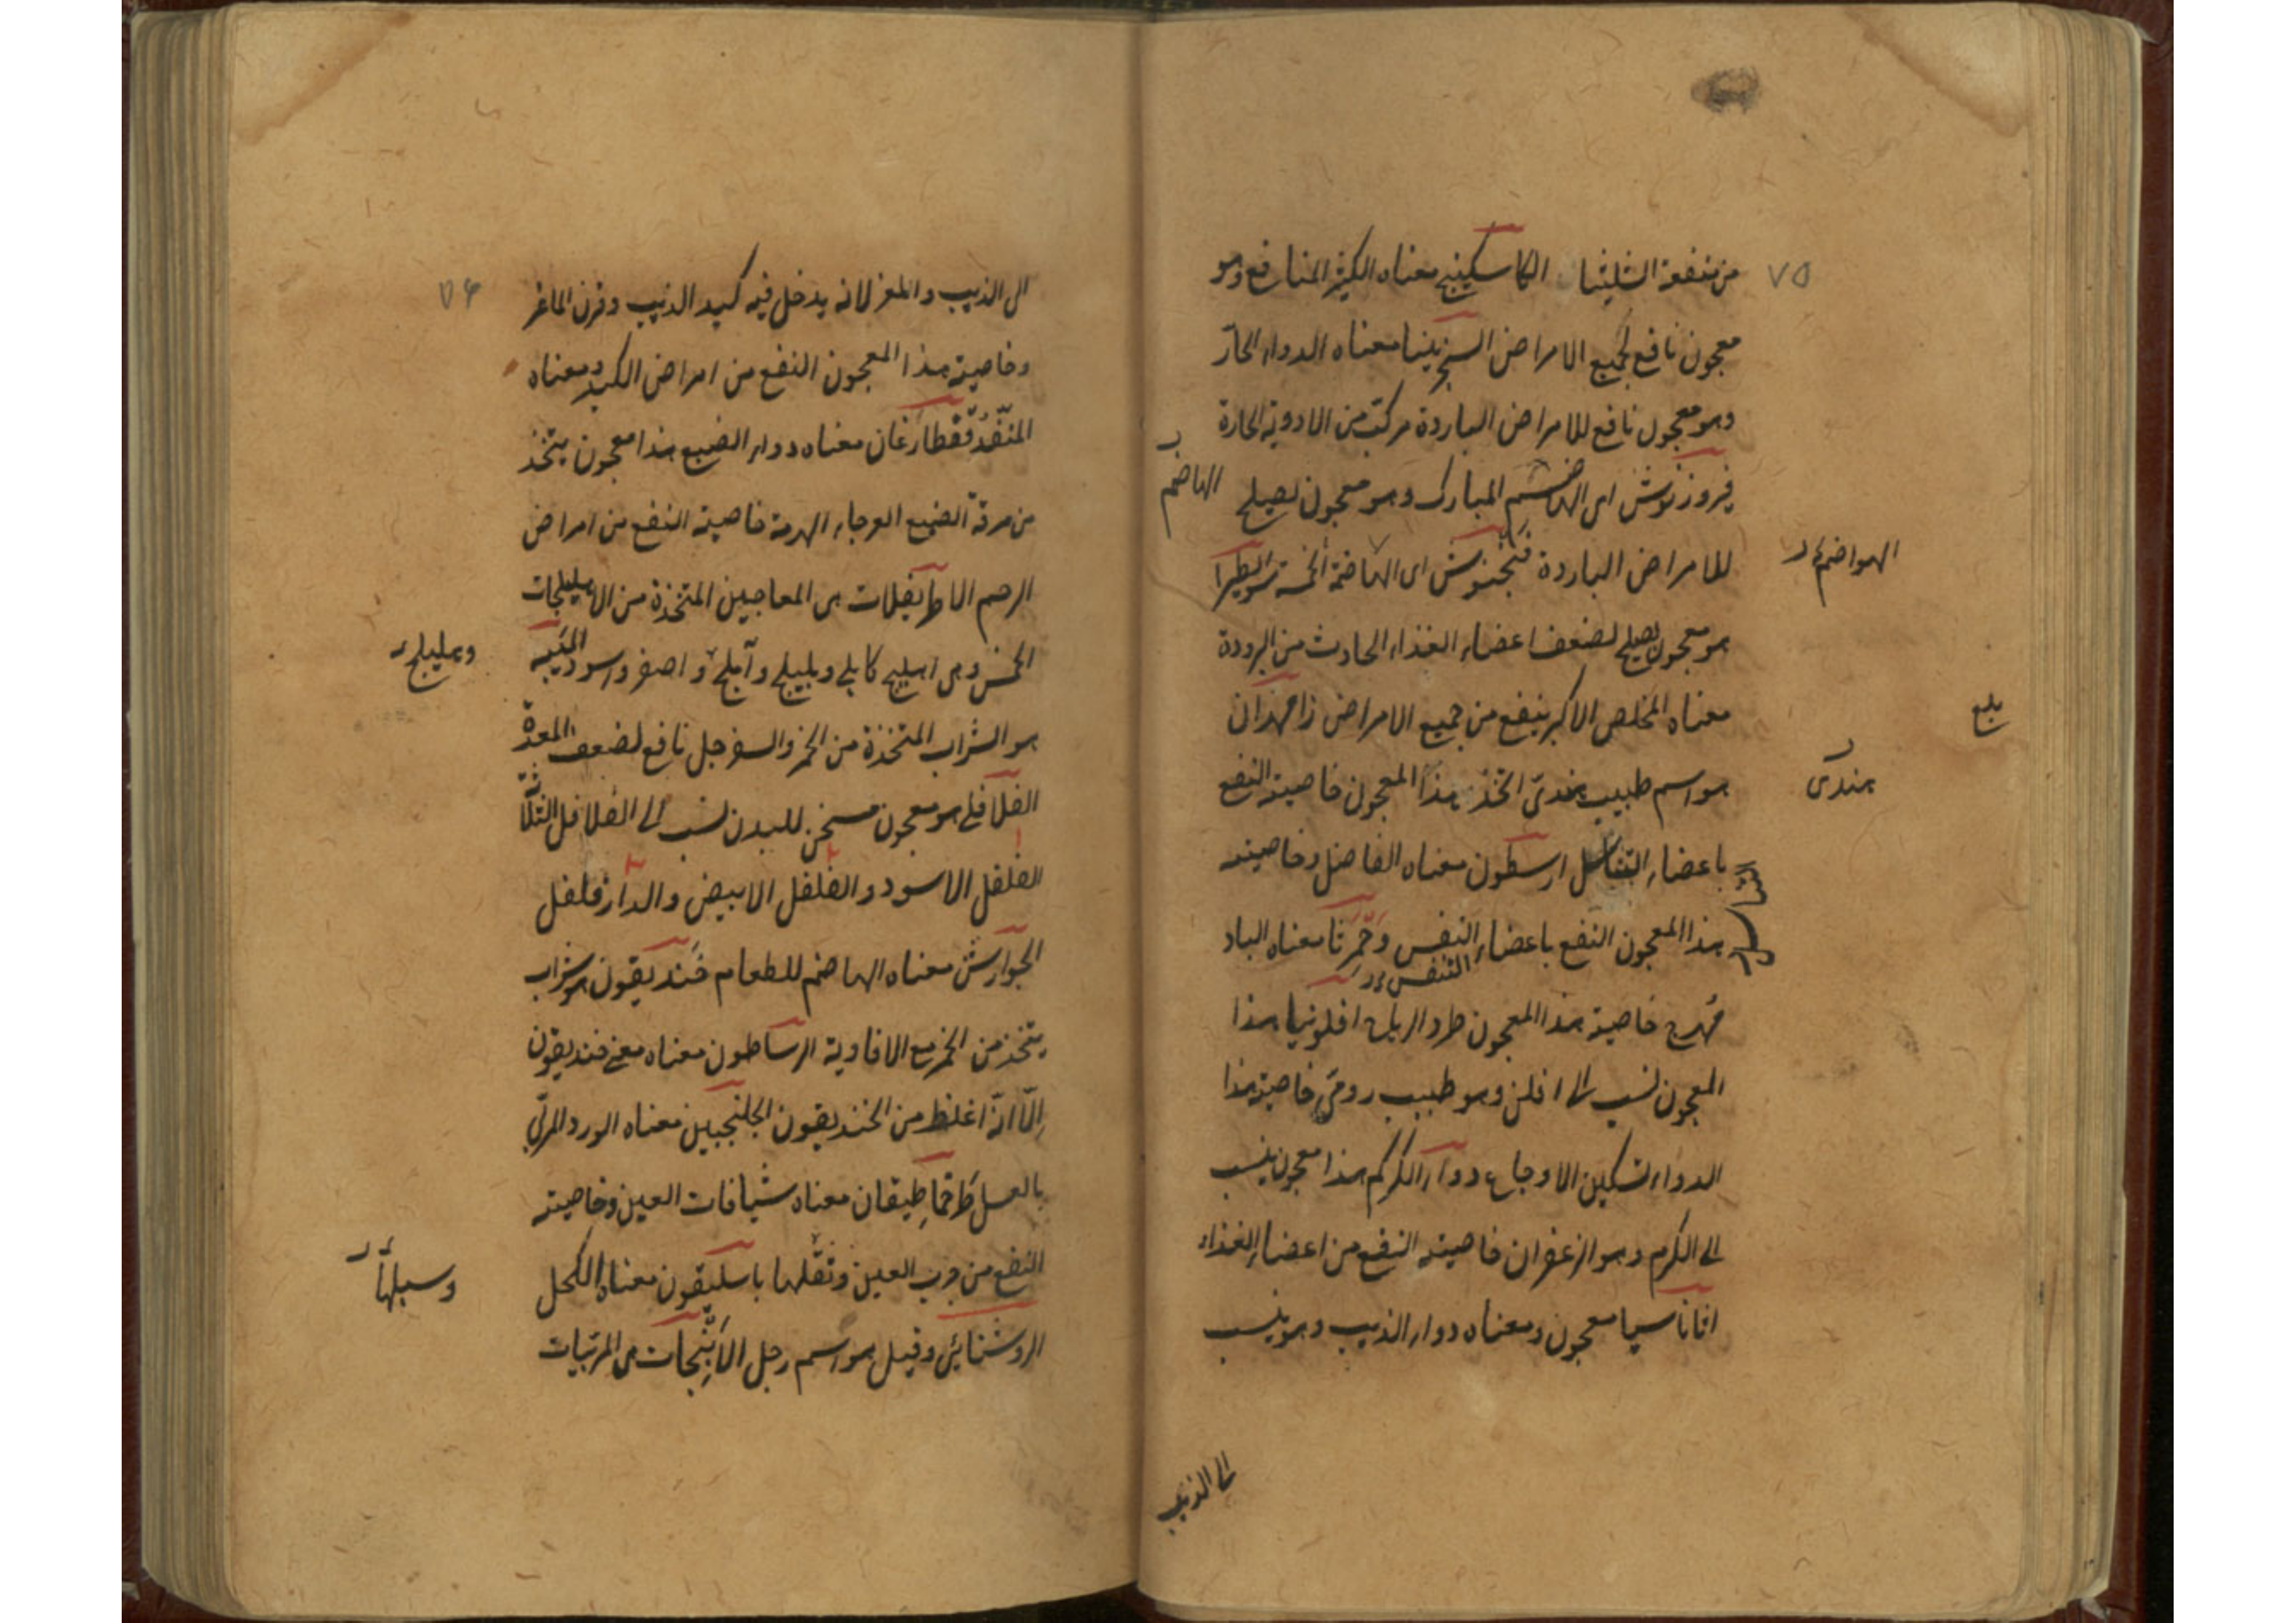 ٧٥
من منفعة الشليثا الكاسكينج معناه الكثير المنافع وهو
معجون نافع لجميع الامراض السجزينيا معناه الدواء الحارّ
وهو معجون نافع للامراض الباردة مركب من الادوية الحارة
فيروزنوش اى الهاضم المبارك وهو معجون يصلح
الهاضم
للامراض الباردة فنجنوش اى الهاضمة الخمسة
الهواضم
هو معجون يصلح لضعف اعضاء الغذاء الحادث من البرودة
معناه المخلص الاكبر ينفع من جميع الامراض زامهران
هو اسم طبيب هندىّ اتخذ هذا المعجون خاصيته النفع
هندى
باعضاء التناسل ارسطون معناه الفاضل وخاصيته
التناسل
هذا المعجون النفع باعضاء النفس معناه الباد
التنفس
مهرج خاصية هذا المعجون طرد الرياح افلونيا هذا
المعجون نسب الى افلن وهو طبيب رومى خاصية هذا
الدواء تسكين الاوجاع دواء الكركم هذا معجون ينسب
الى الكركم وهو الزعفران خاصيته النفع من اعضاء الغذاء
اثاناسيا معجون ومعناه دواء الذيب وهو ينسب
الى الذيب
٧٦
الى الذيب والمعز لانه يدخل فيه كبد الذيب وقرن الماعز
وخاصية هذا المعجون النفع من امراض الكبد ومعناه
المنقذ قفطارغان معناه دواء الضبع هذا معجون يتخذ
من مرقة الضبع العرجاء الهرمة خاصيته النفع من امراض
الرحم الاطريفلات هى المعاجين المتخذة من الاهليلجات
الخمس وهى اهليلج كابلى وبليلج وآملج و اصفر واسود الميبه
وهليلج
هو الشراب المتخذة من الخمر والسفرجل نافع لضعف المعدة
الفلافلى هو معجون مسخن للبدن نسب الى الفلافل الثلاث
الفلفل الاسود والفلفل الابيض والدارفلفل
الجوارش معناه الهاضم للطعام خنديقون هو شراب
يتخذ من الخمر مع الافاوية الرساطون معناه معنى خنديقون
الّا انّه اغلظ من الخنديقون الجلنجبين معناه الورد المربّى
بالعسل طرخماطيقان معناه شيافات العين وخاصيته
النفع من جرب العين وثقلها باسليقون معناه الكحل
وسبلها
الروشنائى وقيل هو اسم رجل الانبجات هى المربّيات